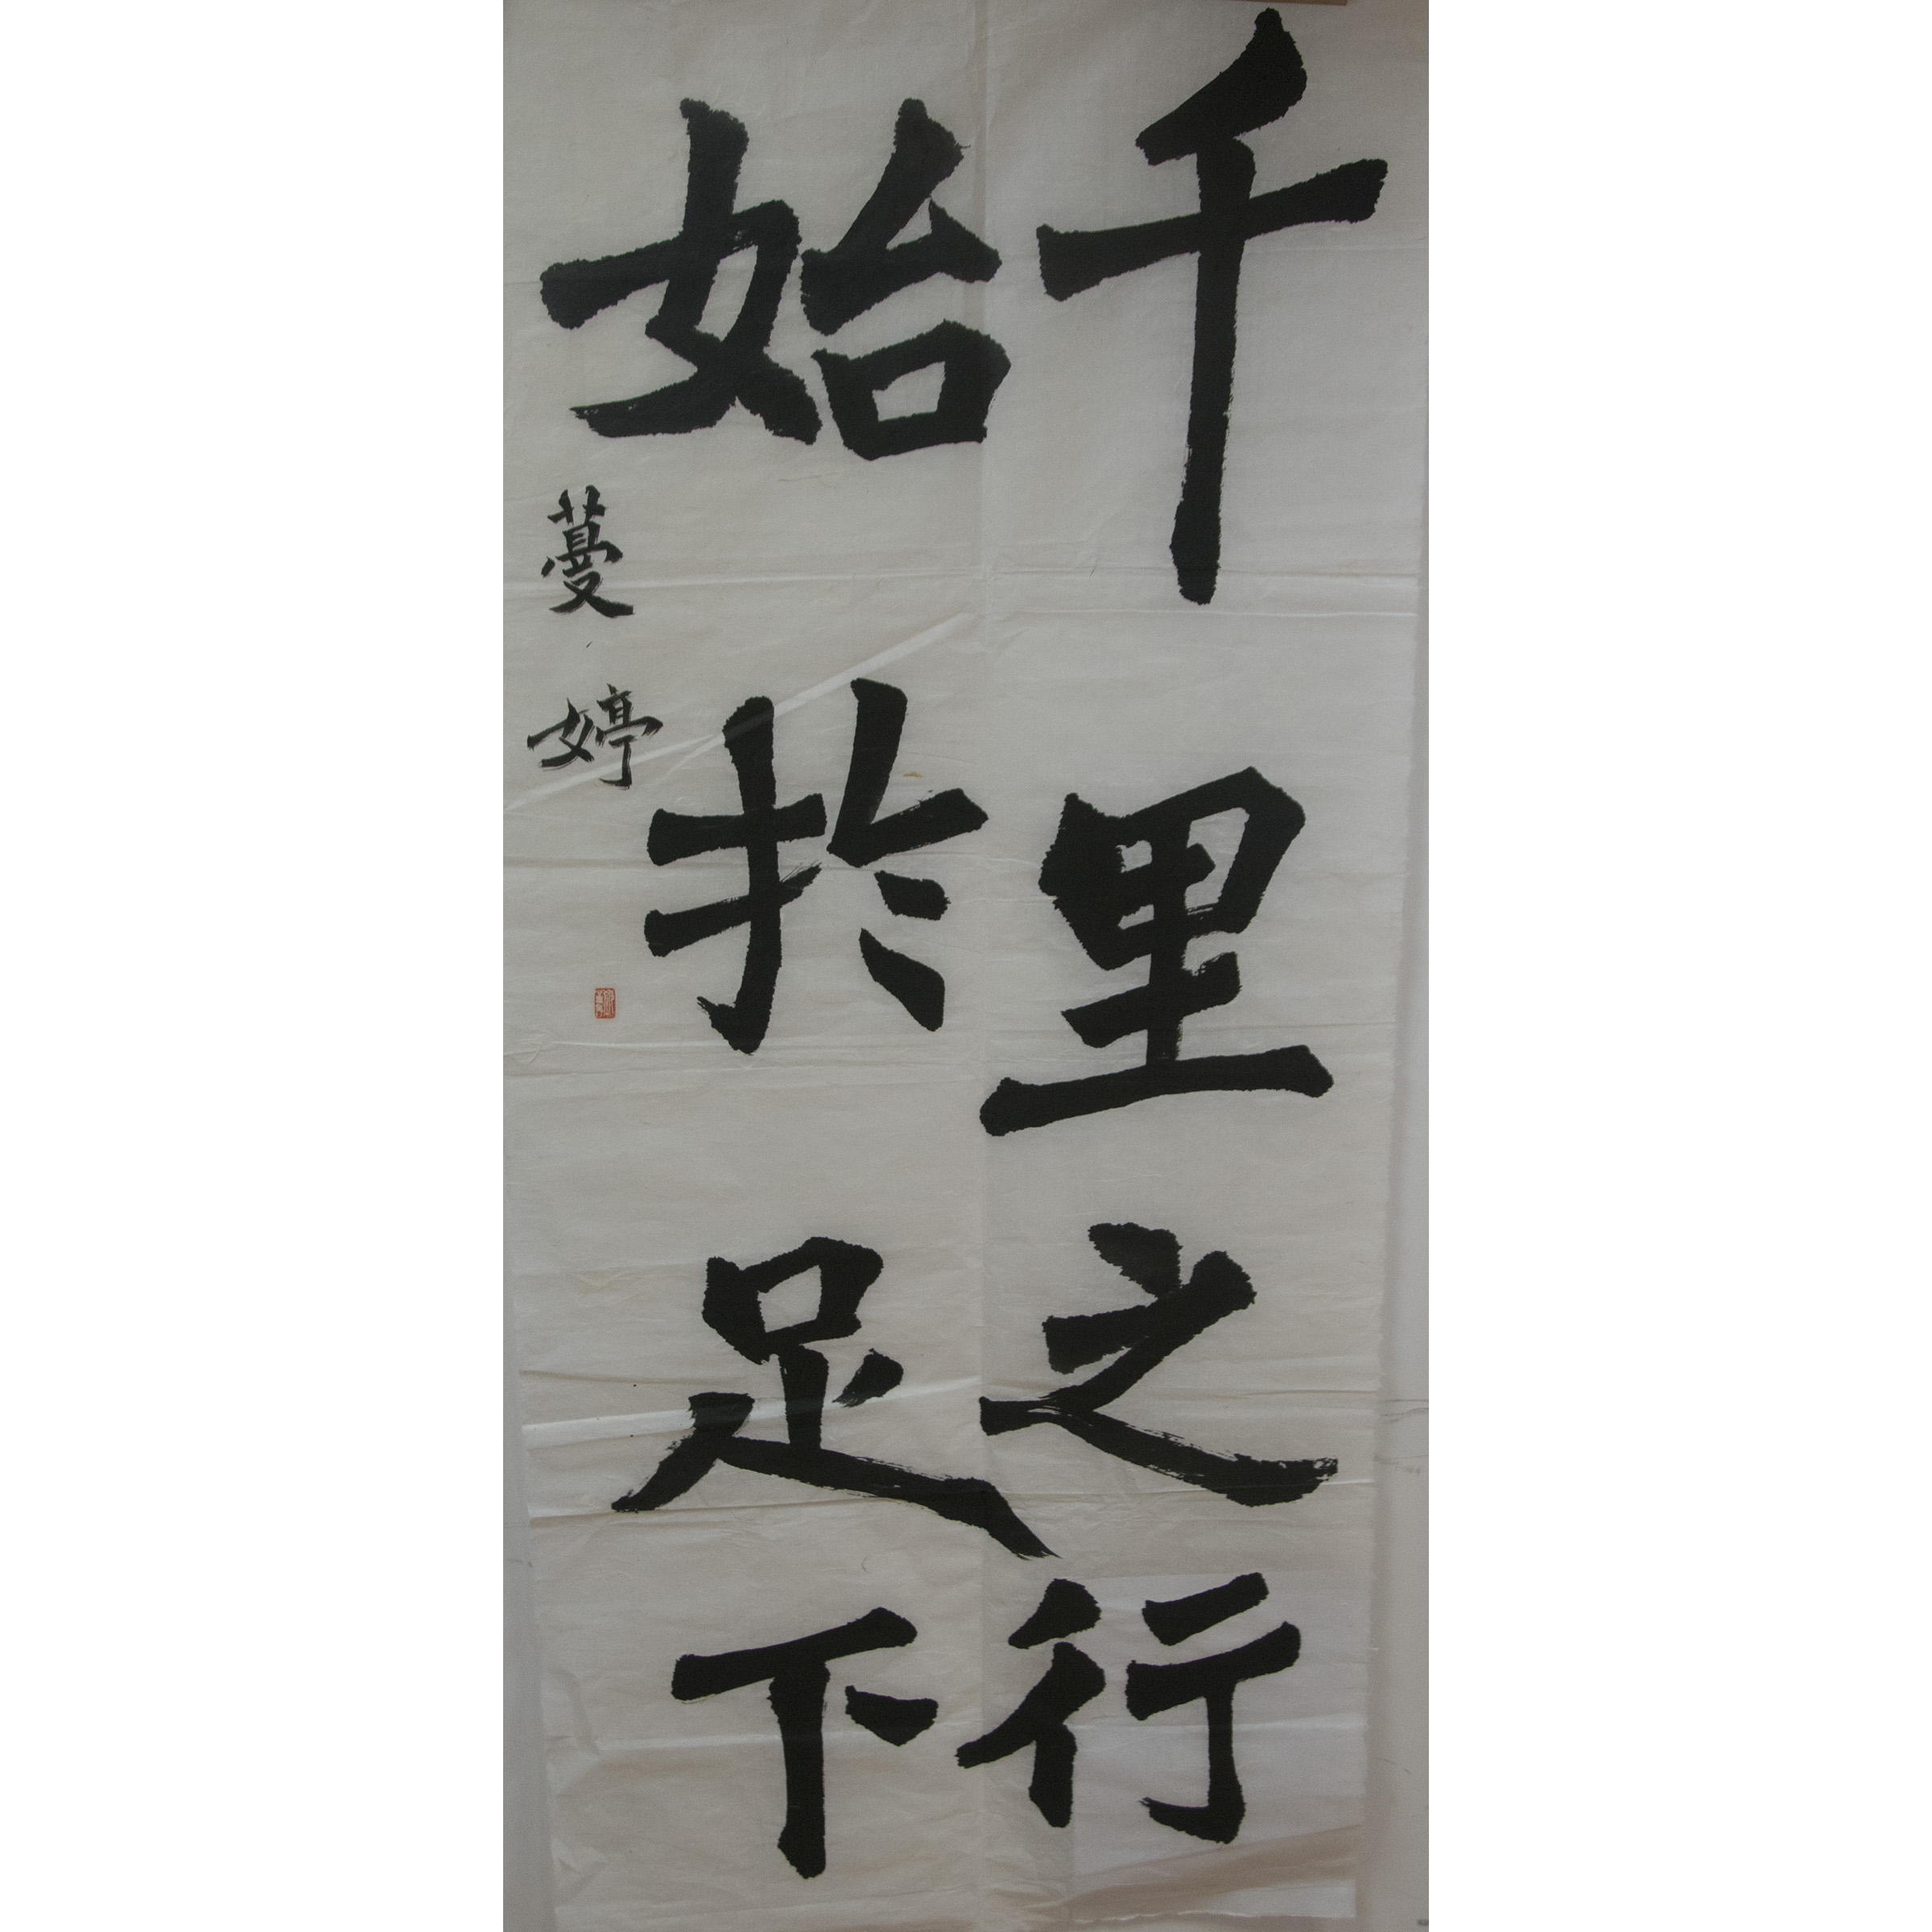 千里之行
始於足下
蔓婷